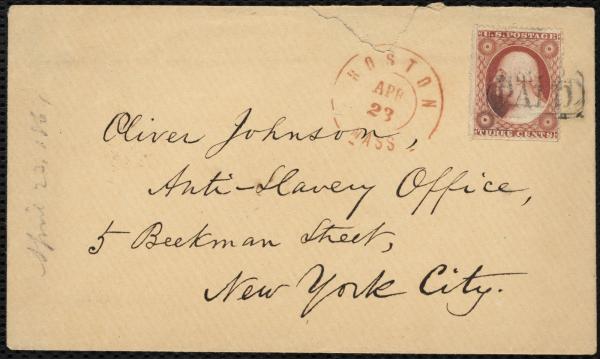 U.S. POSTAGE
THREE CENTS
PAID
BOSTON
APR
23
MASS
Oliver Johnson,
Anti-Slavery Office,
5 Beekman Street,
New York City.
April 23, 1861